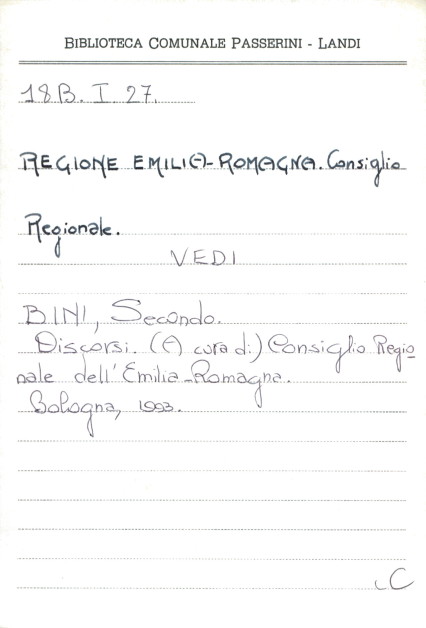 BIBLIOTECA COMUNALE PASSERINI - LANDI
18B. I 27.
REGIONE EMILIA-ROMAGNA. Consiglio
Regionale.
VEDI
BINI, Secondo.
Discorsi. (A cura di) Consiglio Regio
nale dell'Emilia-Romagna.
Bologna, 1993.
C